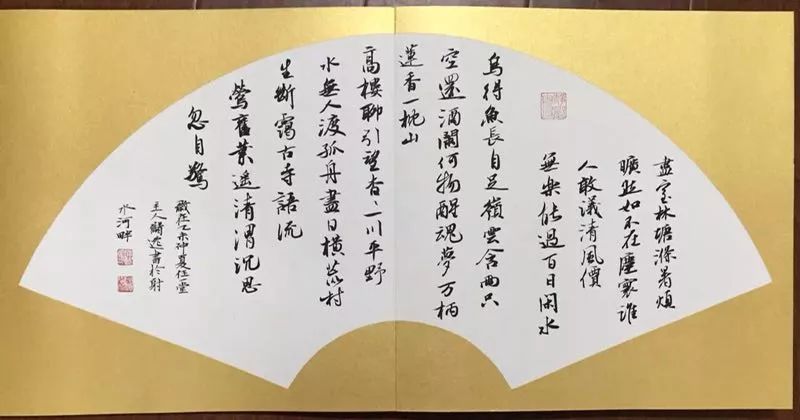 盡室林塘滌暑煩
曠然如不在塵寰誰
人敢議清風價
無樂能過百日閑水
鳥得魚長自足嶺雲含雨只
空還酒闌何物醒魂夢万柄
蓮香一枕山
高樓聊引望杳々一川平野
水無人渡孤舟盡日橫荒村
生斷靄古寺語流
鶯舊業遥清渭沉思
忽自驚
歲在乙未仲夏
主人書於射
水河畔